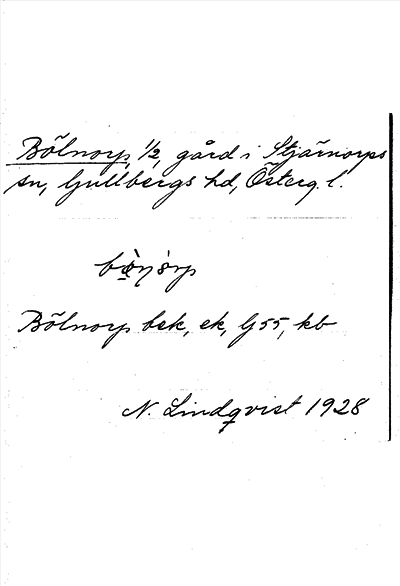 Bölnorp, 1/2, gård i Stjärnorps
sn, Gullbergs hd, Österg. l.
Bölnorp bek, ek, G 55, kb
N. Lindqvist 1928